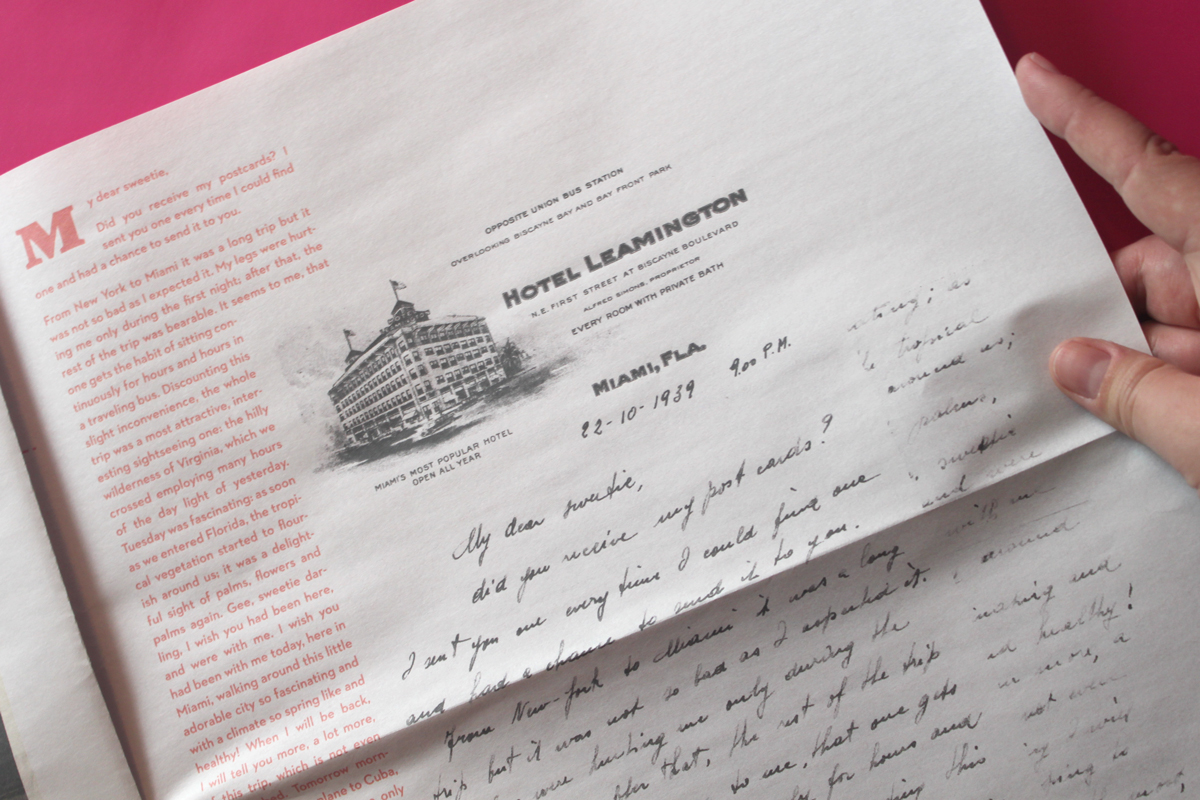 My dear sweetie,
Did you receive my postcards? I
sent you one every time I could find
one and had a chance to send it to you.
From New York to Miami it was a long trip but it
was not so bad as I expected it. My legs were hurt-
ing me only during the first night; after that, the
rest of the trip was bearable. It seems to me, that
one gets the habit of sitting con-
tinuously for hours and hours in
a traveling bus. Discounting this
slight inconvenience, the whole
trip was a most attractive, inter-
esting sightseeing one: the hilly
wilderness of Virginia, which we
crossed employing many hours
of the day light of yesterday.
Tuesday was fascinating: as soon
as we entered Florida, the tropi-
cal vegetation started to flour-
ish around us; it was a delight-
ful sight of palms, flowers and
palms again. Gee, sweetie dar-
ling, I wish you had been here,
and were with me. I wish you
had been with me today, here in
Miami, walking around this little
adorable city so fascinating and
with a climate so spring like and
healthy! When I will be back,
I will tell you more, a lot more,
of this trip, which is not even
Tomorrow morn-
plane to Cuba,
only
OPPOSITE UNION BUS STATION
OVERLOOKING BISCAYNE BAY AND BAY FRONT PARK
HOTEL LEAMINGTON
N.E. FIRST STREET AT BISCAYNE BOULEVARD
ALFRED SIMONS, PROPRIETOR
EVERY ROOM WITH PRIVATE BATH
MIAMI, FLA.
MIAMI'S MOST POPULAR HOTEL
OPEN ALL YEAR
22-10-1939 9.00 P.M.
My dear sweetie,
did you receive my post cards?
I sent you one every time I could find one
and had a chance to send it to you.
From New-York to Miami it was a long
trip but it was not so bad as I expected it.
were hurting me only during the
that, the rest of the trip
to me, that one gets
for hours and
this
as
tropical
around us;
palms,
sweetie
and were
with me
around
and
healthy!
more, a
not even